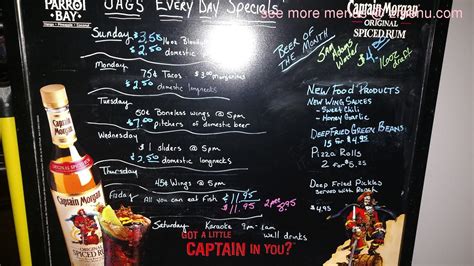 PARROT
BAY
JAGS EVERY DAY SPECIALS
see more menus
Captain Morgan
ORIGINAL
SPICED RUM
Sunday
$3.50 16oz Bloody
$2.50 domestic
Monday
75¢ Tacos
$3.00 Margaritas
$2.50 domestic longnecks
Tuesday
50¢ Boneless wings @ 5pm
$7.00 pitchers of domestic beer
Wednesday
$1 off @ 5pm
$2.50 domestic longnecks
Thursday
45¢ Wings @ 5pm
Friday
All you can eat Fish
$11.95
$11.95
2pcs 8.95
Saturday Karaoke 9pm-1am
well drunks
BEER OF
THE MONTH
Sam Adams
Winter
$4.
16oz
draft
New Food Products
New Wing Sauces
- Sweet Chili
- Honey Garlic
Deep Fried Green Beans
15 for $4.95
Pizza Rolls
2 for $5.25
Deep Fried Pickles
Served with Ranch
$4.95
Captain Morgan
ORIGINAL SPICED RUM
GOT A LITTLE
CAPTAIN IN YOU?